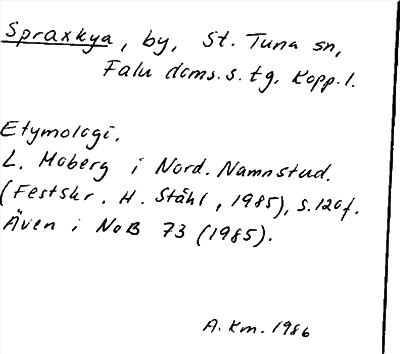 Spraxkya, by, St. Tuna sn,
Falu doms. s. tg, Kopp. l.
Etymologi.
L. Moberg i Nord. Namnstud.
(Festskr. H. Ståhl, 1985), s. 120 f.
Även i NoB 73 (1985).
A. Km. 1986